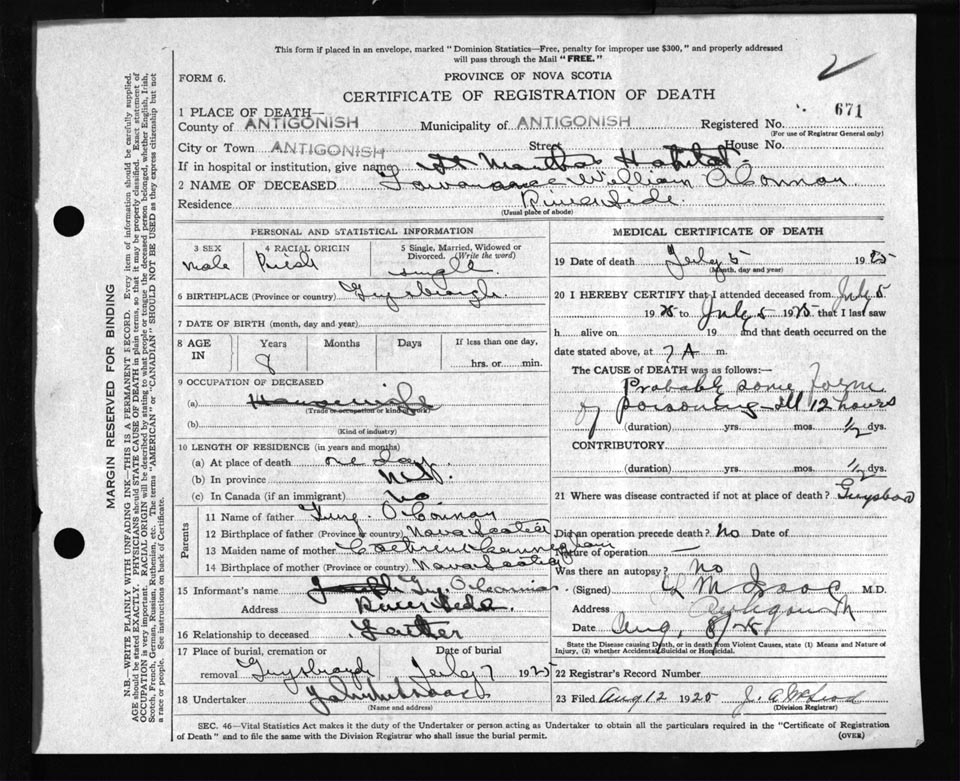 This form if placed in an envelope, marked "Dominion Statistics—Free, penalty for improper use $300," and properly addressed
will pass through the Mail "FREE."
2
FORM 6.
PROVINCE OF NOVA SCOTIA
CERTIFICATE OF REGISTRATION OF DEATH
671
1 PLACE OF DEATH—
County of ANTIGONISH Municipality of ANTIGONISH Registered No.
(For use of Registrar General only)
City or Town ANTIGONISH Street House No.
If in hospital or institution, give name St Marthas Hospital
2 NAME OF DECEASED William OConnor
Residence Riverside
(Usual place of abode)
PERSONAL AND STATISTICAL INFORMATION
3 SEX
Male
4 RACIAL ORIGIN
5 Single, Married, Widowed or
Divorced. (Write the word)
single
6 BIRTHPLACE (Province or country) Guysborough
7 DATE OF BIRTH (month, day and year)
8 AGE IN Years Months Days If less than one day,
8
hrs. or min.
9 OCCUPATION OF DECEASED
(a)
(Trade or occupation or kind of work)
(b)
(Kind of industry)
10 LENGTH OF RESIDENCE (in years and months)
(a) At place of death one day
(b) In province
(c) In Canada (if an immigrant) No
Parents
11 Name of father OConnor
12 Birthplace of father (Province or country) Nova Scotia
13 Maiden name of mother
14 Birthplace of mother Nova Scotia
15 Informant's name
Address River Side
16 Relationship to deceased Father
17 Place of burial, cremation or Date of burial
removal Guysborough July 7 1925
18 Undertaker
(Name and address)
MEDICAL CERTIFICATE OF DEATH
19 Date of death July 5 1925
(Month, day and year)
20 I HEREBY CERTIFY that I attended deceased from July 5
1925 to July 5 1925 that I last saw
h alive on 19 and that death occurred on
date stated above, at 7 A m.
The CAUSE of DEATH was as follows:—
Probably some form
of poisoning ill 12 hours
(duration) yrs. mos. 1/2 dys.
CONTRIBUTORY
(duration) yrs. mos. 1/2 dys.
21 Where was disease contracted if not at place of death?
Did an operation precede death? No Date of
Nature of operation —
Was there an autopsy? No
(Signed) M.D.
Address Antigonish
Date Aug. 8/25
State the Disease causing Death, or in death from Violent Causes, state (1) Means and Nature of
Injury, (2) whether Accidental, Suicidal or Homicidal.
22 Registrar's Record Number
23 Filed Aug 12 1925 J. A. McLeod
(Division Registrar)
SEC. 46—Vital Statistics Act makes it the duty of the Undertaker or person acting as Undertaker to obtain all the particulars required in the "Certificate of Registration
of Death" and to file the same with the Division Registrar who shall issue the burial permit.
(OVER)
MARGIN RESERVED FOR BINDING
N.B.—WRITE PLAINLY WITH UNFADING INK—THIS IS A PERMANENT RECORD. Every item of information should be carefully supplied.
AGE should be stated EXACTLY. PHYSICIANS should STATE CAUSE OF DEATH in plain terms, so that it may be properly classified. Exact statement of
OCCUPATION is very important. RACIAL ORIGIN will be described by stating to what people or tongue the deceased person belonged, whether English, Irish,
Scotch, French, German, Russian, Ruthenian, etc. The terms "AMERICAN" or "CANADIAN" SHOULD NOT BE USED as they express citizenship but not
a race or people. See instructions on back of Certificate.